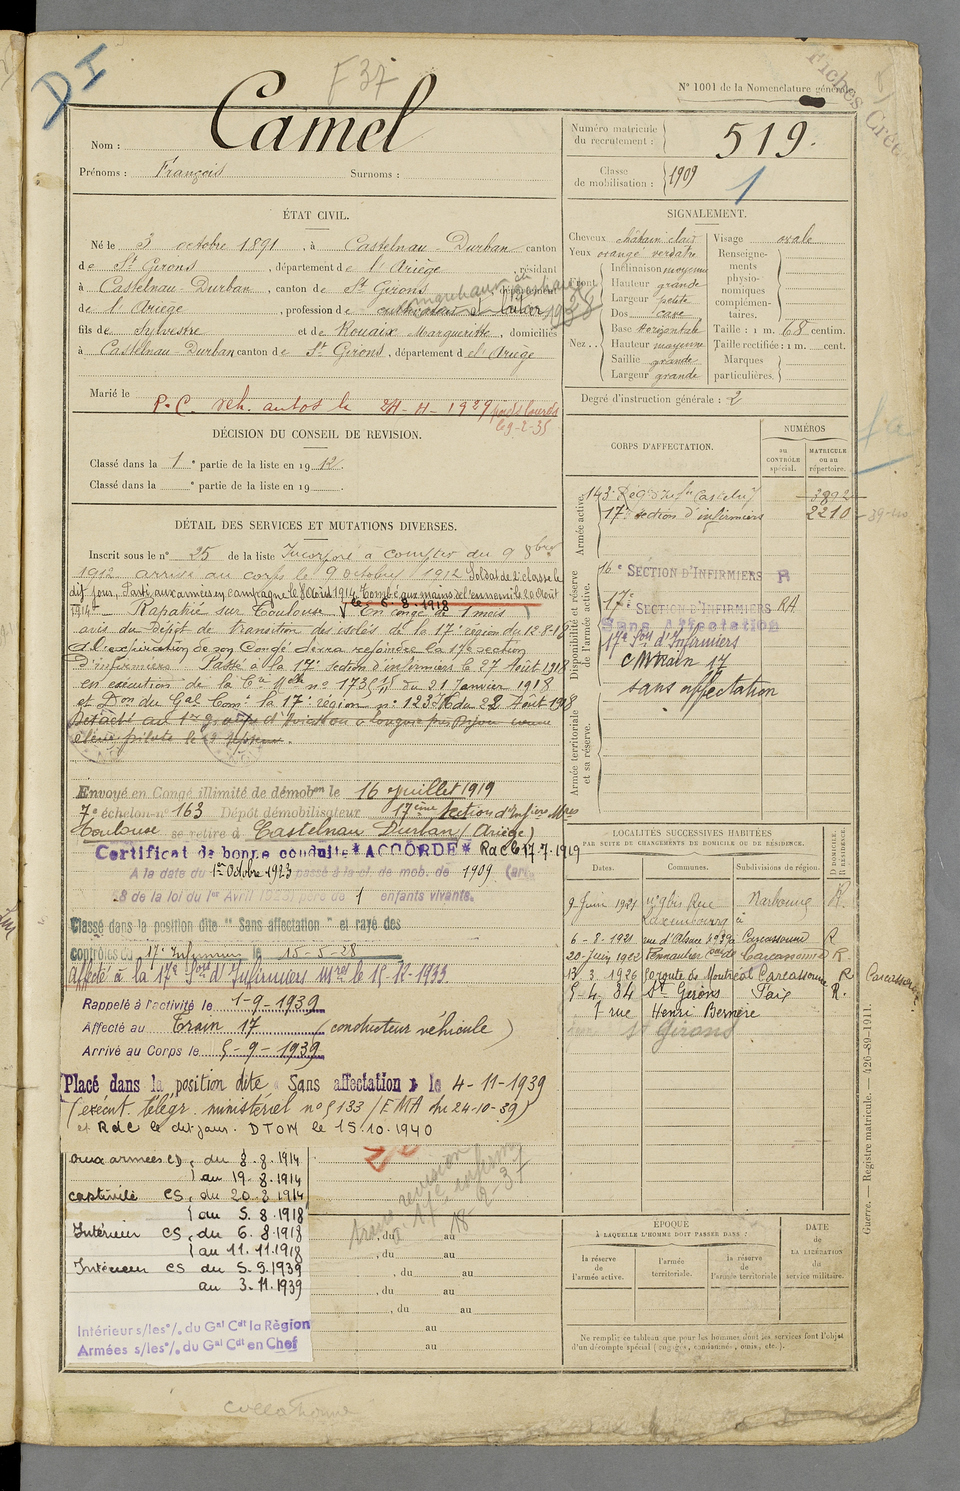 DI
F 37
Fiches Créé
N° 1001 de la Nomenclature générale
Nom : Camel
Prénoms : François Surnoms :
Numéro matricule du recrutement : 519.
Classe de mobilisation : 1909
1
ÉTAT CIVIL.
Né le 3 octobre 1891, à Castelnau-Durban canton
de St Girons, département de l'Ariège, résidant
à Castelnau-Durban, canton de St Girons, département
de l'Ariège, profession de cultivateur
1938
fils de Sylvestre et de Rouaix Margueritte, domiciliés
à Castelnau-Durban canton de St Girons, département de l'Ariège
Marié le
P.C. veh. autos le 24-4-1929 poids lourds
le 9-2-35
SIGNALEMENT.
Cheveux châtain clair
Yeux orangé verdâtre
Front
Inclinaison moyenne
Hauteur grande
Largeur petite
Nez
Dos cave
Base horizontale
Hauteur moyenne
Saillie grande
Largeur grande
Visage ovale
Renseignements physionomiques complémentaires.
Taille : 1 m. 68 centim.
Taille rectifiée : 1 m. cent.
Marques particulières.
Degré d'instruction générale : 2
DÉCISION DU CONSEIL DE REVISION.
Classé dans la 1e partie de la liste en 1912.
Classé dans la e partie de la liste en 19
CORPS D'AFFECTATION.
NUMÉROS
au CONTRÔLE spécial.
MATRICULE ou au répertoire.
Armée active.
143e Rég. d'Inf. 3892
17e section d'infirmiers 2210
Disponibilité et réserve de l'armée active.
16e SECTION D'INFIRMIERS R
17e SECTION D'INFIRMIERS RA
Sans Affectation
17e Son d'Infirmiers
Train 17
sans affectation
Armée territoriale et sa réserve.
DÉTAIL DES SERVICES ET MUTATIONS DIVERSES.
Inscrit sous le n° 25 de la liste Incorporé à compter du 9 8bre
1912 arrivé au corps le 9 octobre 1912 Soldat de 2e classe le
dit jour, Parti aux armées en campagne le 8 Août 1914 Tombé aux mains de l'ennemi le 20 Août
1914 Rapatrié sur Toulouse le 6-8-1918 En congé de 1 mois
avis du Dépôt de transition des isolés de la 17e région du 12-8-18
à l'expiration de son Congé devra rejoindre la 17e section
d'infirmiers Passé à la 17e Section d'infirmiers le 27 Août 1918
en exécution de la Cre Melle n° 1735 du 21 Janvier 1918
et Don du Gal Comt la 17e région n° 123 du 22 Août 1918
Envoyé en Congé illimité de démobon le 16 juillet 1919
7e échelon n° 163 Dépôt démobilisateur 17ème Section d'Infiers Mres
Toulouse se retire à Castelnau Durban (Ariège)
Certificat de bonne conduite "ACCORDÉ" RdC le 17.7.1919
A la date du 1er Octobre 1923 passé à la cl. de mob. de 1909 (art.
58 de la loi du 1er Avril 1923) père de 1 enfants vivants.
Classé dans la position dite "Sans affectation" et rayé des
contrôles du 17e Infirmiers le 15-5-28
Affecté à la 17e Son d'Infirmiers Mres le 15-12-1933
Rappelé à l'activité le 1-9-1939
Affecté au Train 17 (conducteur véhicule)
Arrivé au Corps le 5-9-1939
Placé dans la position dite « Sans affectation » le 4-11-1939
(exécut. télégr. ministériel n° 5133 / EMA du 24-10-39)
et RdC le dit jour. DTOM le 15.10.1940
LOCALITÉS SUCCESSIVES HABITÉES
PAR SUITE DE CHANGEMENTS DE DOMICILE OU DE RÉSIDENCE.
Dates. Communes. Subdivisions de région. D DOMICILE. R RÉSIDENCE.
9 Juin 1921 n° 9 bis Rue Narbonne R.
Luxembourg à
6-8-1921 rue d'Alsace n° 39 à Carcassonne R
20 Juin 1922 Pennautier Carcassonne R.
13.3.1926 50 route de Montréal Carcassonne R Carcassonne
5-4-34 St Girons Foix R.
7 rue Henri Bernère
St Girons
aux armées CD, du 8.8.1914
au 19-8-1914
captivité CS, du 20-8-1914
au 5.8.1918
Intérieur CS, du 6.8.1918
au 11.11.1918
Intérieur CS du 5.9.1939
au 3.11.1939
Intérieur s/les o/. du Gal Cdt la Région
Armées s/les o/. du Gal Cdt en Chef
18-2-37
, du au
, du au
, du au
, du au
, du au
au
au
ÉPOQUE
À LAQUELLE L'HOMME DOIT PASSER DANS :
la réserve de l'armée active.
l'armée territoriale.
la réserve de l'armée territoriale
DATE de LA LIBÉRATION du service militaire.
Ne remplir ce tableau que pour les hommes dont les services font l'objet
d'un décompte spécial (engagés, condamnés, omis, etc.).
Guerre. — Registre matricule. — 426-89-1911.
collationné